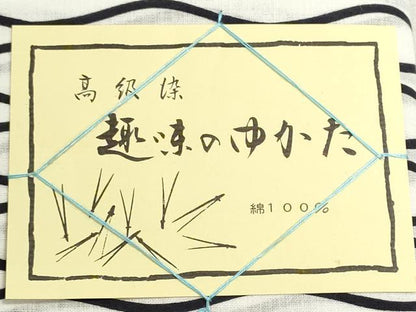 高級染
趣味のゆかた
綿100%